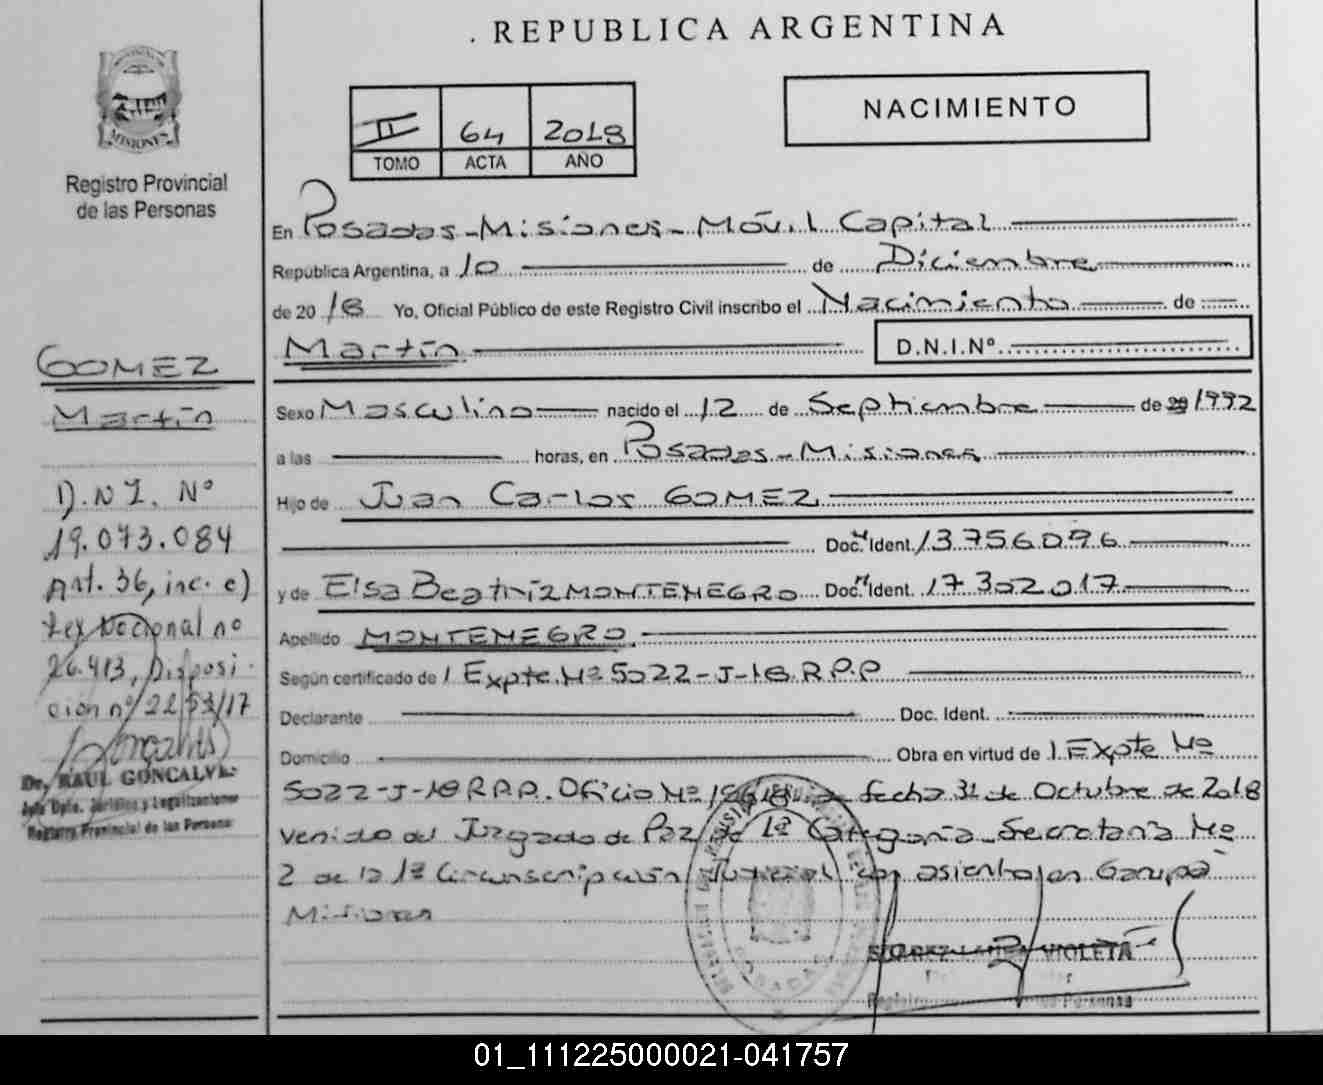 REPUBLICA ARGENTINA
MISIONES
Registro Provincial
de las Personas
II 64 2018
TOMO ACTA AÑO
NACIMIENTO
En Posadas - Misiones - Móvil Capital
República Argentina, a 10 de Diciembre
de 20 18 Yo, Oficial Público de este Registro Civil inscribo el Nacimiento de
Martín D.N.I.Nº
GOMEZ
Martín
D.N.I. Nº
19.073.084
Art. 36, inc. c)
Ley Nacional nº
26.413, Disposi-
ción nº 2253/17
Dr. RAUL GONCALVES
Jefe Dpto. Jurídico y Legalizaciones
Registro Provincial de las Personas
Sexo Masculino nacido el 12 de Septiembre de 1992
a las horas, en Posadas - Misiones
Hijo de Juan Carlos GOMEZ
Doc. Ident. Nº 13.756.096
y de Elsa Beatriz MONTENEGRO Doc. Ident. Nº 17.302.017
Apellido MONTENEGRO
Según certificado de 1 Expte. Nº 5022-J-18 R.P.P
Declarante Doc. Ident.
Domicilio Obra en virtud de 1 Expte Nº
5022-J-18 R.P.P. Oficio Nº fecha 31 de Octubre de 2018
venido del Juzgado de Paz de 1ª Categoría Secretaría Nº
2 de la 1ª Circunscripción Judicial con asiento en Garupá
Misiones
VIOLETA
Registro Personas
POSADAS
01_111225000021-041757